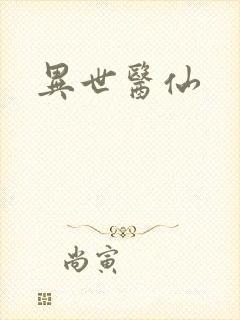 異世醫仙
尚寅